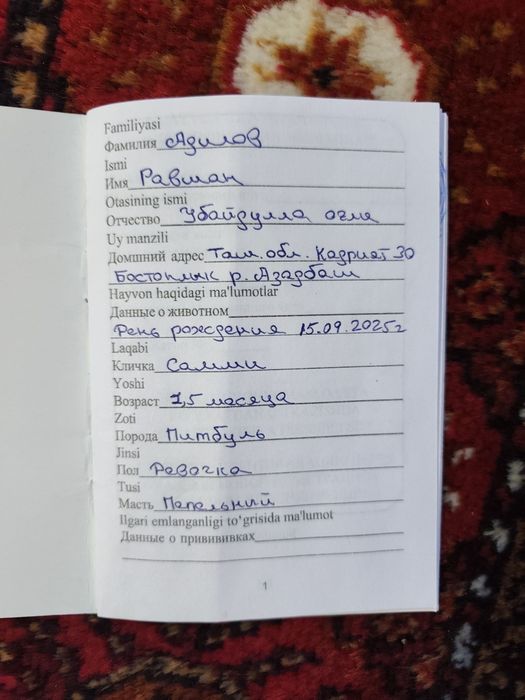 Familiyasi
Фамилия Адилов
Ismi
Имя Равшан
Otasining ismi
Отчество Убайдулла огли
Uy manzili
Домшний адрес Таш.обл. Кадрият 30
Бостонлык р. Азадбаш
Hayvon haqidagi ma'lumotlar
Данные о животном
День рождения 15.09.2025г
Laqabi
Кличка Самми
Yoshi
Возраст 1,5 месяца
Zoti
Порода Питбуль
Jinsi
Пол Девочка
Tusi
Масть Пепельний
Ilgari emlanganligi to'grisida ma'lumot
Данные о привививках
1